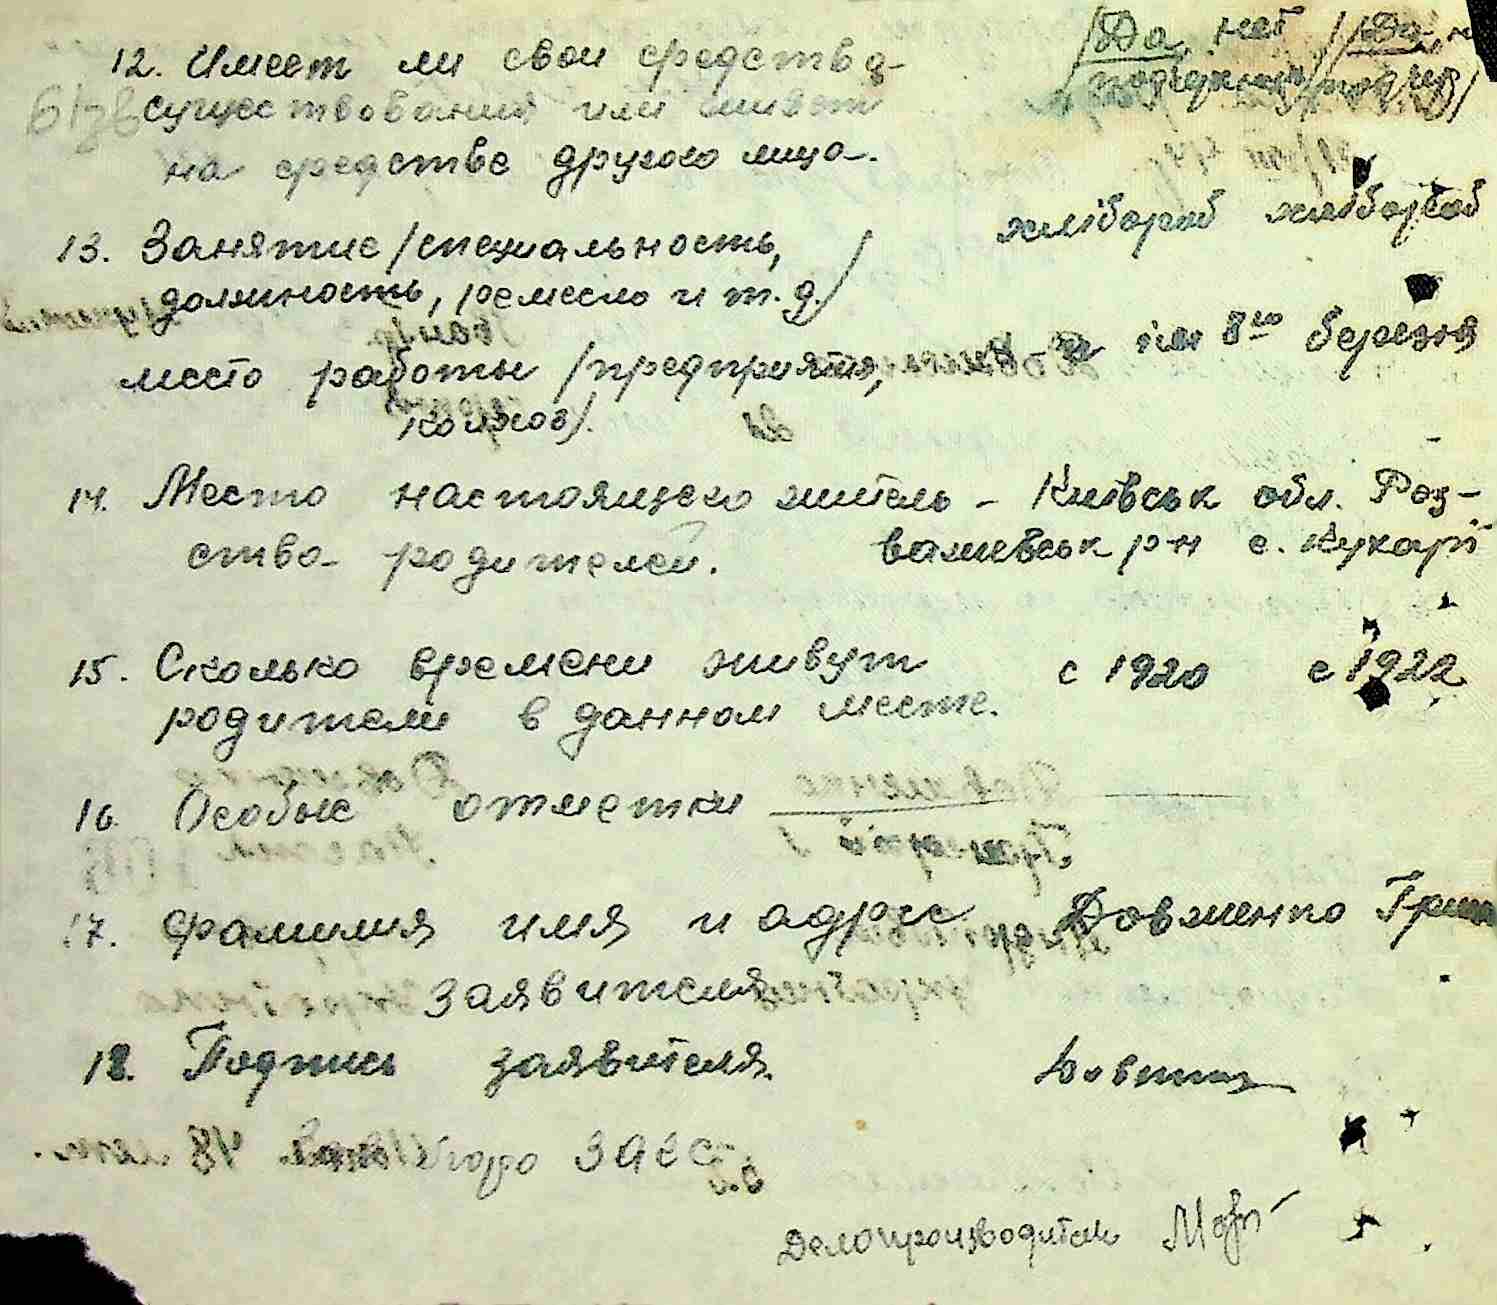 /Да, нет / /Да, н
12. Имеет ли свои средства
/подчеркнуть/
существования или живет
на средстве другого лица.
13. Занятие /специальность,
хлібороб хлібороб
должность, ремесло и т.д./
место работы /предприятие,
им 8го березня
колхоз/.
14. Место настоящего житель- Київськ обл. Роз-
ства родителей. важевськ р-н с. Кухарі
15. Сколько времени живут с 1920 с 1922
родители в данном месте.
16. Особые отметки
17. Фамилия имя и адрес Довженко Гриш
заявителя
18. Подпись заявителя.
бюро ЗАГС
Делопроизводитель